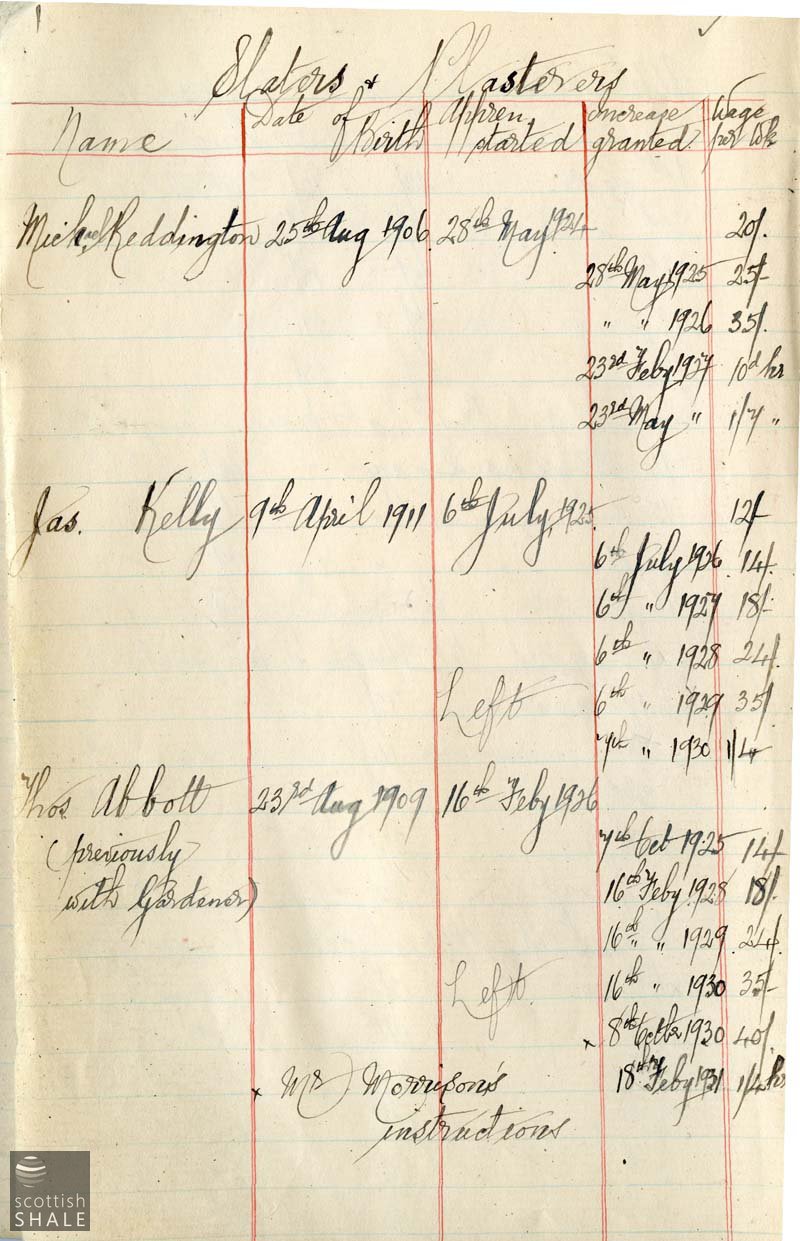 Slaters & Plasterers
Name Date of Birth Appren started Increase granted Wage per Wk
Michael Reddington 25th Aug 1906 28th May 1924 20/.
28th May 1925 25/-
" " 1926 35/.
23rd Feby 1927 10d hr
23rd May " 1/7 "
Jas. Kelly 9th April 1911 6th July 1925 12/-
6th July 1926 14/.
6th " 1927 18/-
6th " 1928 24/.
Left 6th " 1929 35/
7th " 1930 1/4
Thos. Abbott 23rd Aug 1909 16th Feby 1926
(previously 7th Oct 1925 14/-
with Gardener) 16th Feby 1928 18/.
16th " 1929 24/.
Left. 16th " 1930 35/-
x 8th Octbr 1930 40/.
x Mr Morrison's 18th Feby 1931 1/4 hr
instructions
scottish
SHALE